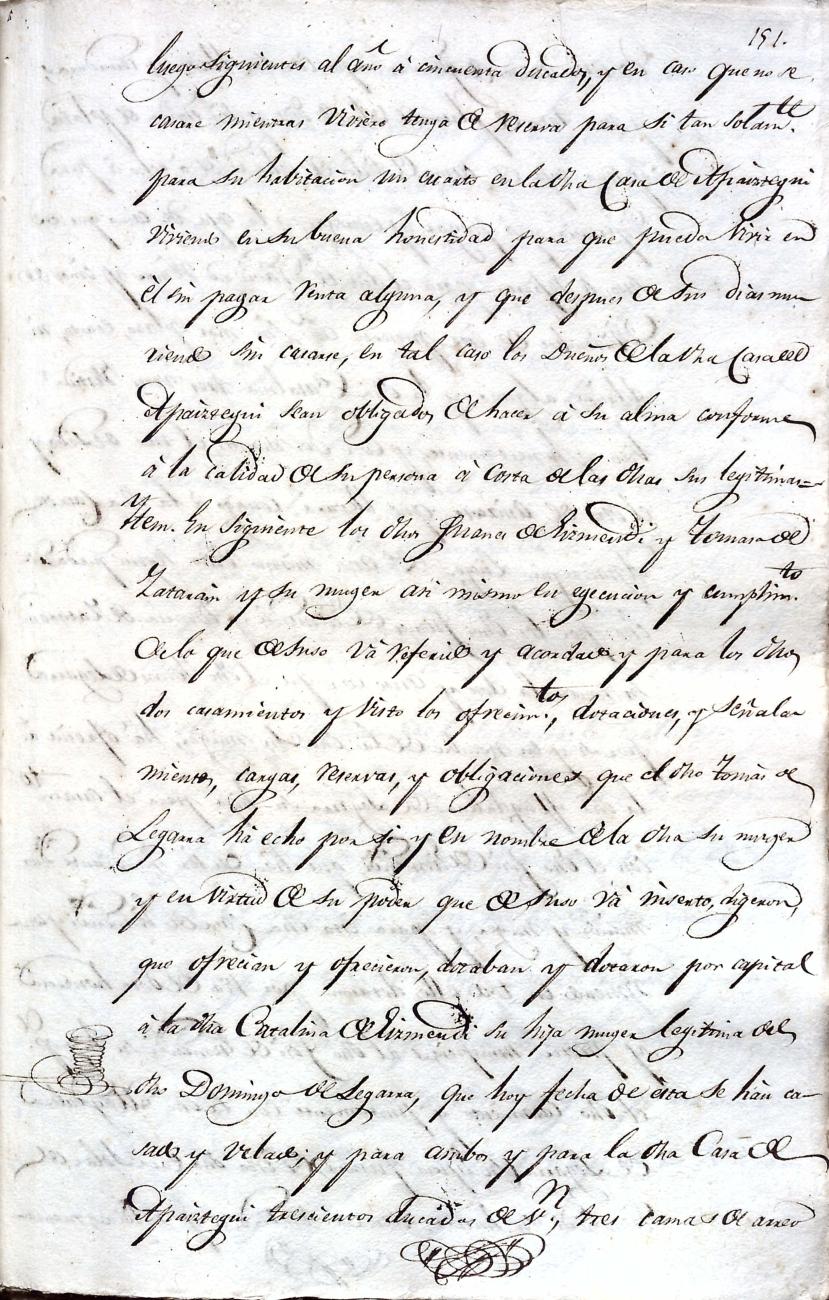 151.
luego siguientes al año à cincuenta ducados, y en caso que no se
casare mientras viviere tenga de reserva para si tan solam.te
para su habitacion un cuarto en la dha Casa de Apaiztegui
viviend en su buena honestidad para que pueda vivir en
èl sin pagar renta alguna, y que despues de sus dias mu-
riendo sin casarse, en tal caso los Dueños de la dha Casa de
Apaiztegui sean obligados de hacer à su alma conforme
à la calidad de su persona à costa de las dhas sus legitimas=
Ytem. En siguiente los dhos Juanes de Eizmendi y Tomasa de
Zatarain y su muger asi mismo en egecucion y cumplim.to
de lo que de suso và referido y acordado y para los dhos
dos casamientos y visto los ofrecim.tos, dotaciones, y señala
mientos, cargas, reservas, y obligaciones que el dho Tomàs de
Legarra hà echo por si y en nombre de la dha su muger
y en virtud de su poder que de suso và inserto, digeron,
que ofrecian y ofrecieron, dotaban y dotaron por capital
à la dha Catalina de Eizmendi su hija muger legitima del
dho Domingo de Legarra, que hoy fecha de esta se hàn ca-
sado y velado; y para ambos y para la dha Casa de
Apaiztegui trescientos ducados de V.n, tres camas de arreo